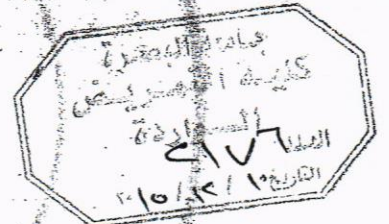 جامعة البصرة
كلية التمريض
الصادرة
العدد ٢١٧٦
التاريخ ١٠ / ٢ / ٢٠١٥